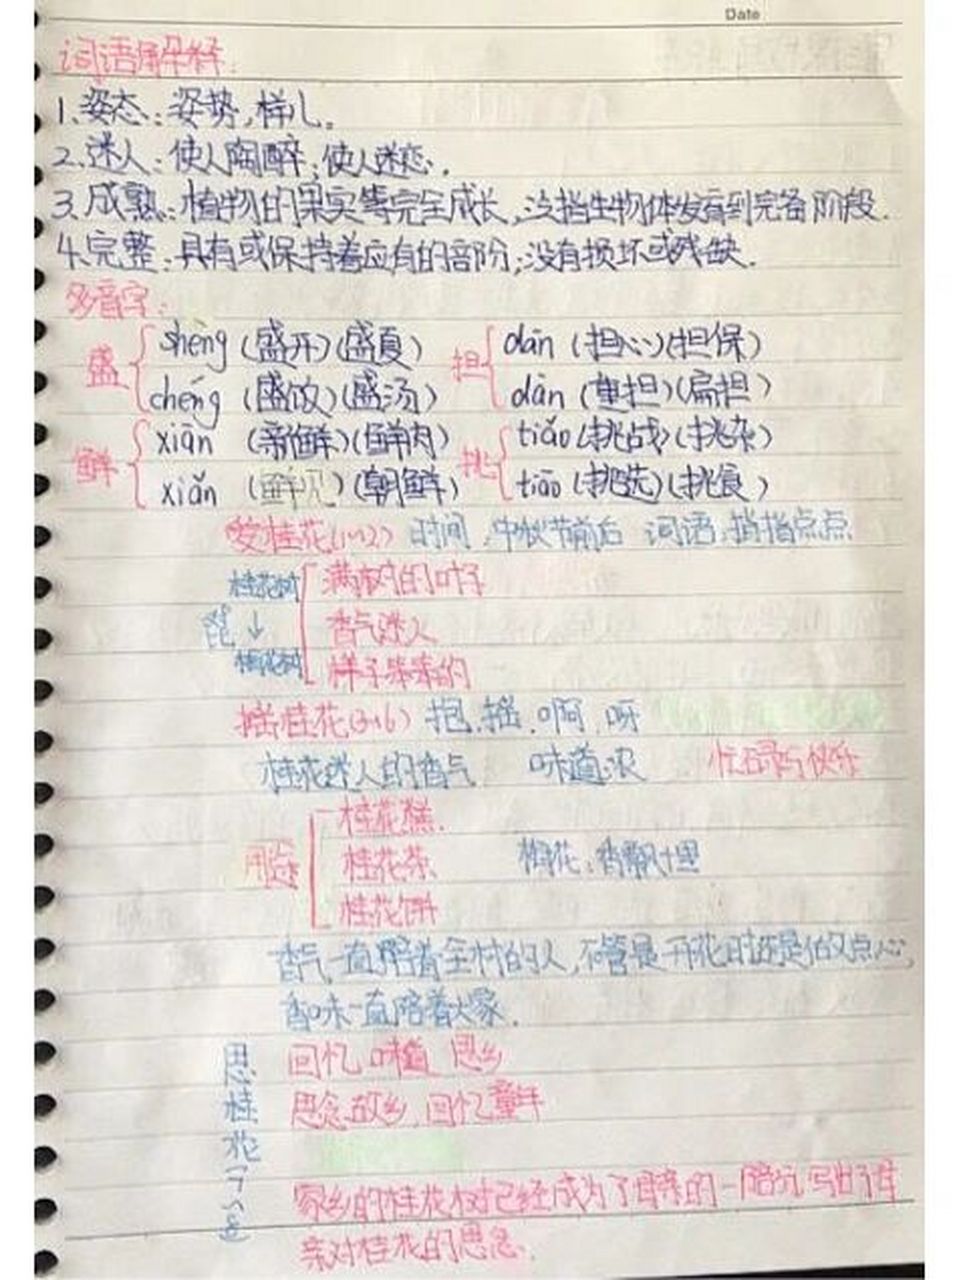 Date
词语解释:
1.姿态:姿势,样儿。
2.迷人:使人陶醉;使人迷恋.
3.成熟:植物的果实等完全成长,泛指生物体发育到完备阶段.
4.完整:具有或保持着应有的部分;没有损坏或残缺.
多音字:
盛 shèng (盛开)(盛夏) 担 dān (担心)(担保)
chéng (盛饭)(盛汤) dàn (重担)(扁担)
鲜 xiān (新鲜)(鲜肉) 挑 tiǎo (挑战)(挑杂)
xiǎn (鲜见)(朝鲜) tiāo (挑选)(挑食)
爱桂花(1~2) 时间:中秋节前后 词语:指指点点
桂花树 满树的叶子
↓ 香气迷人
梅花树 样子笨笨的
摇桂花(3~6) 抱.摇.啊.呀
桂花迷人的香气 味道:浓 忙碌与快乐
用途 桂花糕.
桂花茶. 桂花:香飘十里
桂花饼
香气一直陪着全村的人,不管是开花时还是做点心,
香味一直陪着大家.
思桂花 回忆 味道 思乡
思念故乡,回忆童年
家乡的桂花树已经成为了母亲的一部分,写出了母
亲对桂花的思念.